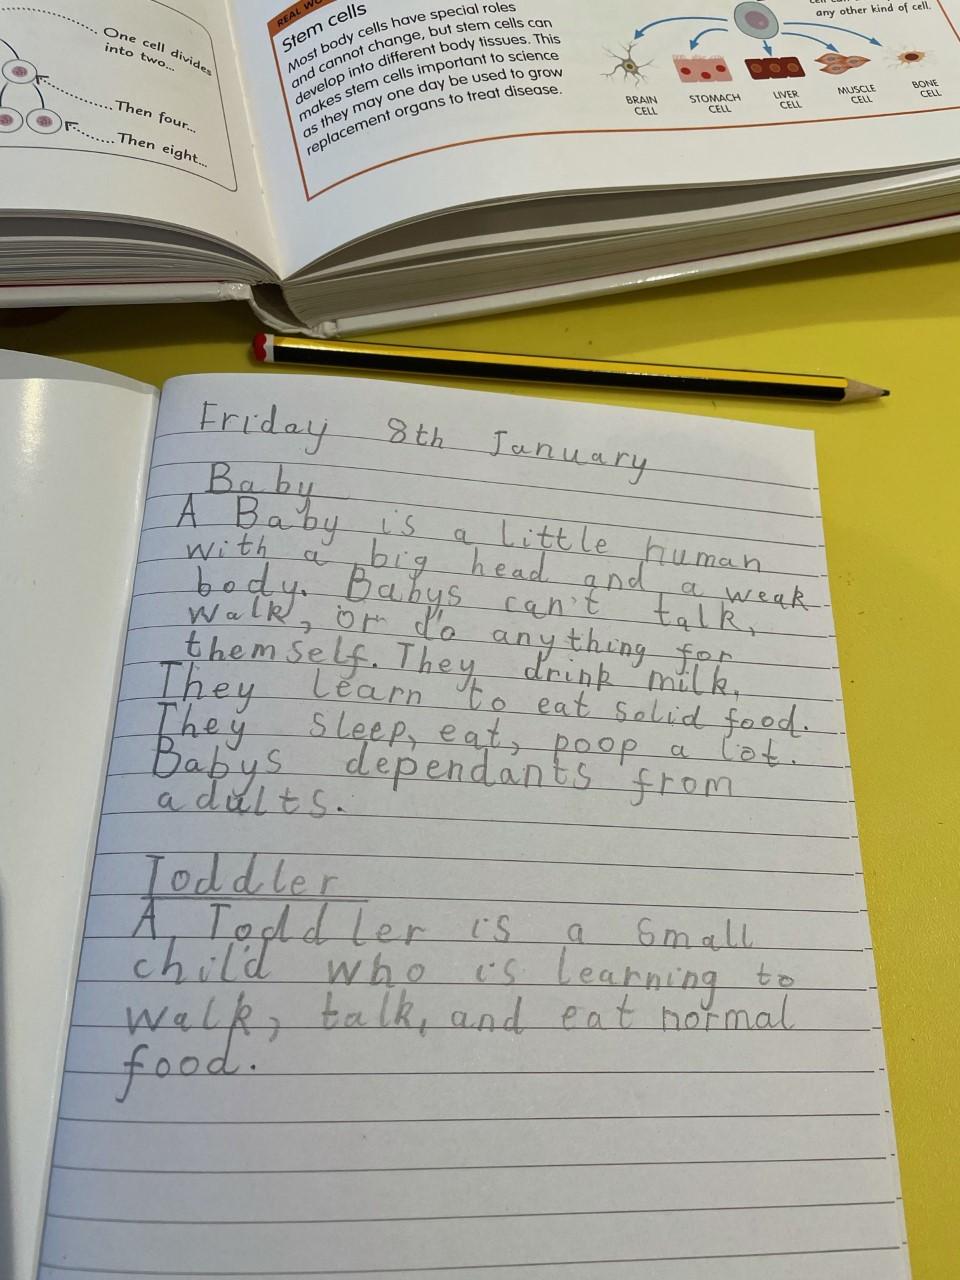 One cell divides
into two...
Then four...
Then eight...
REAL
Stem cells
Most body cells have special roles
and cannot change, but stem cells can
develop into different body tissues. This
makes stem cells important to science
as they may one day be used to grow
replacement organs to treat disease.
any other kind of cell.
BRAIN
CELL
STOMACH
CELL
LIVER
CELL
MUSCLE
CELL
BONE
CELL
Friday 8th January
Baby
A Baby is a little human
with a big head and a weak
body. Babys can't talk,
walk, or do anything for
themself. They drink milk.
They learn to eat solid food.
They sleep, eat, poop a lot.
Babys dependants from
adults.
Toddler
A Toddler is a small
child who is learning to
walk, talk, and eat normal
food.